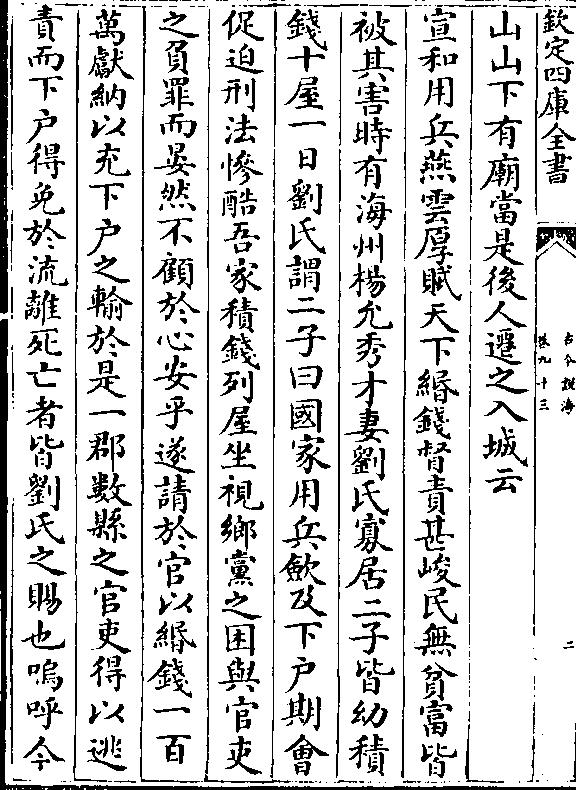 欽定四庫全書
古今說海
卷九十三
二
山山下有廟當是後人遷之入城云
宣和用兵燕雲厚賦天下緡錢督責甚峻民無貧富皆
被其害時有海州楊允秀才妻劉氏寡居二子皆幼積
錢十屋一日劉氏謂二子曰國家用兵歛及下户期會
促迫刑法慘酷吾家積錢列屋坐視鄉黨之困與官吏
之負罪而晏然不顧於心安乎遂請於官以緡錢一百
萬獻納以充下户之輸於是一郡數縣之官吏得以逃
責而下户得免於流離死亡者皆劉氏之賜也嗚呼今